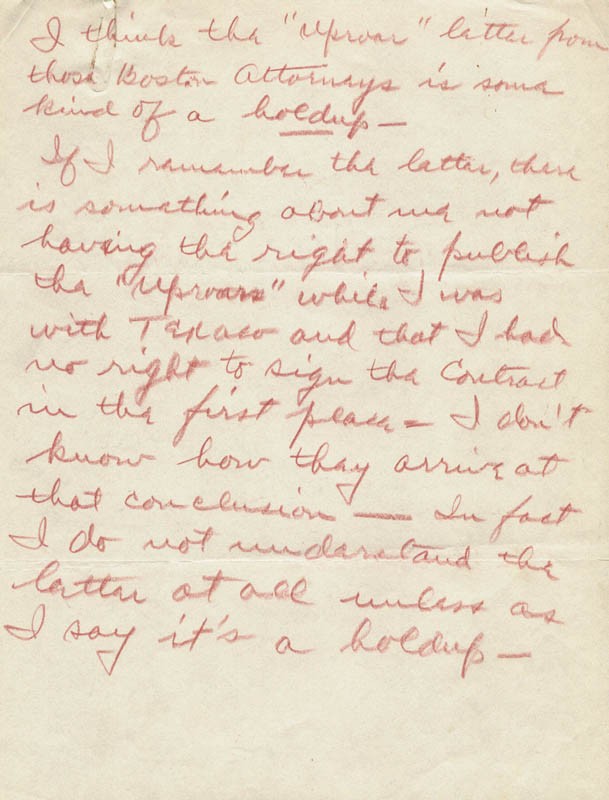 I think the "Uproar" letter from
those Boston Attorneys is some
kind of a holdup —
If I remember the letter, there
is something about me not
having the right to publish
the "Uproars" while I was
with Texaco and that I had
no right to sign the Contract
in the first place — I don't
know how they arrive at
that conclusion — In fact
I do not understand the
letter at all unless as
I say it's a holdup —